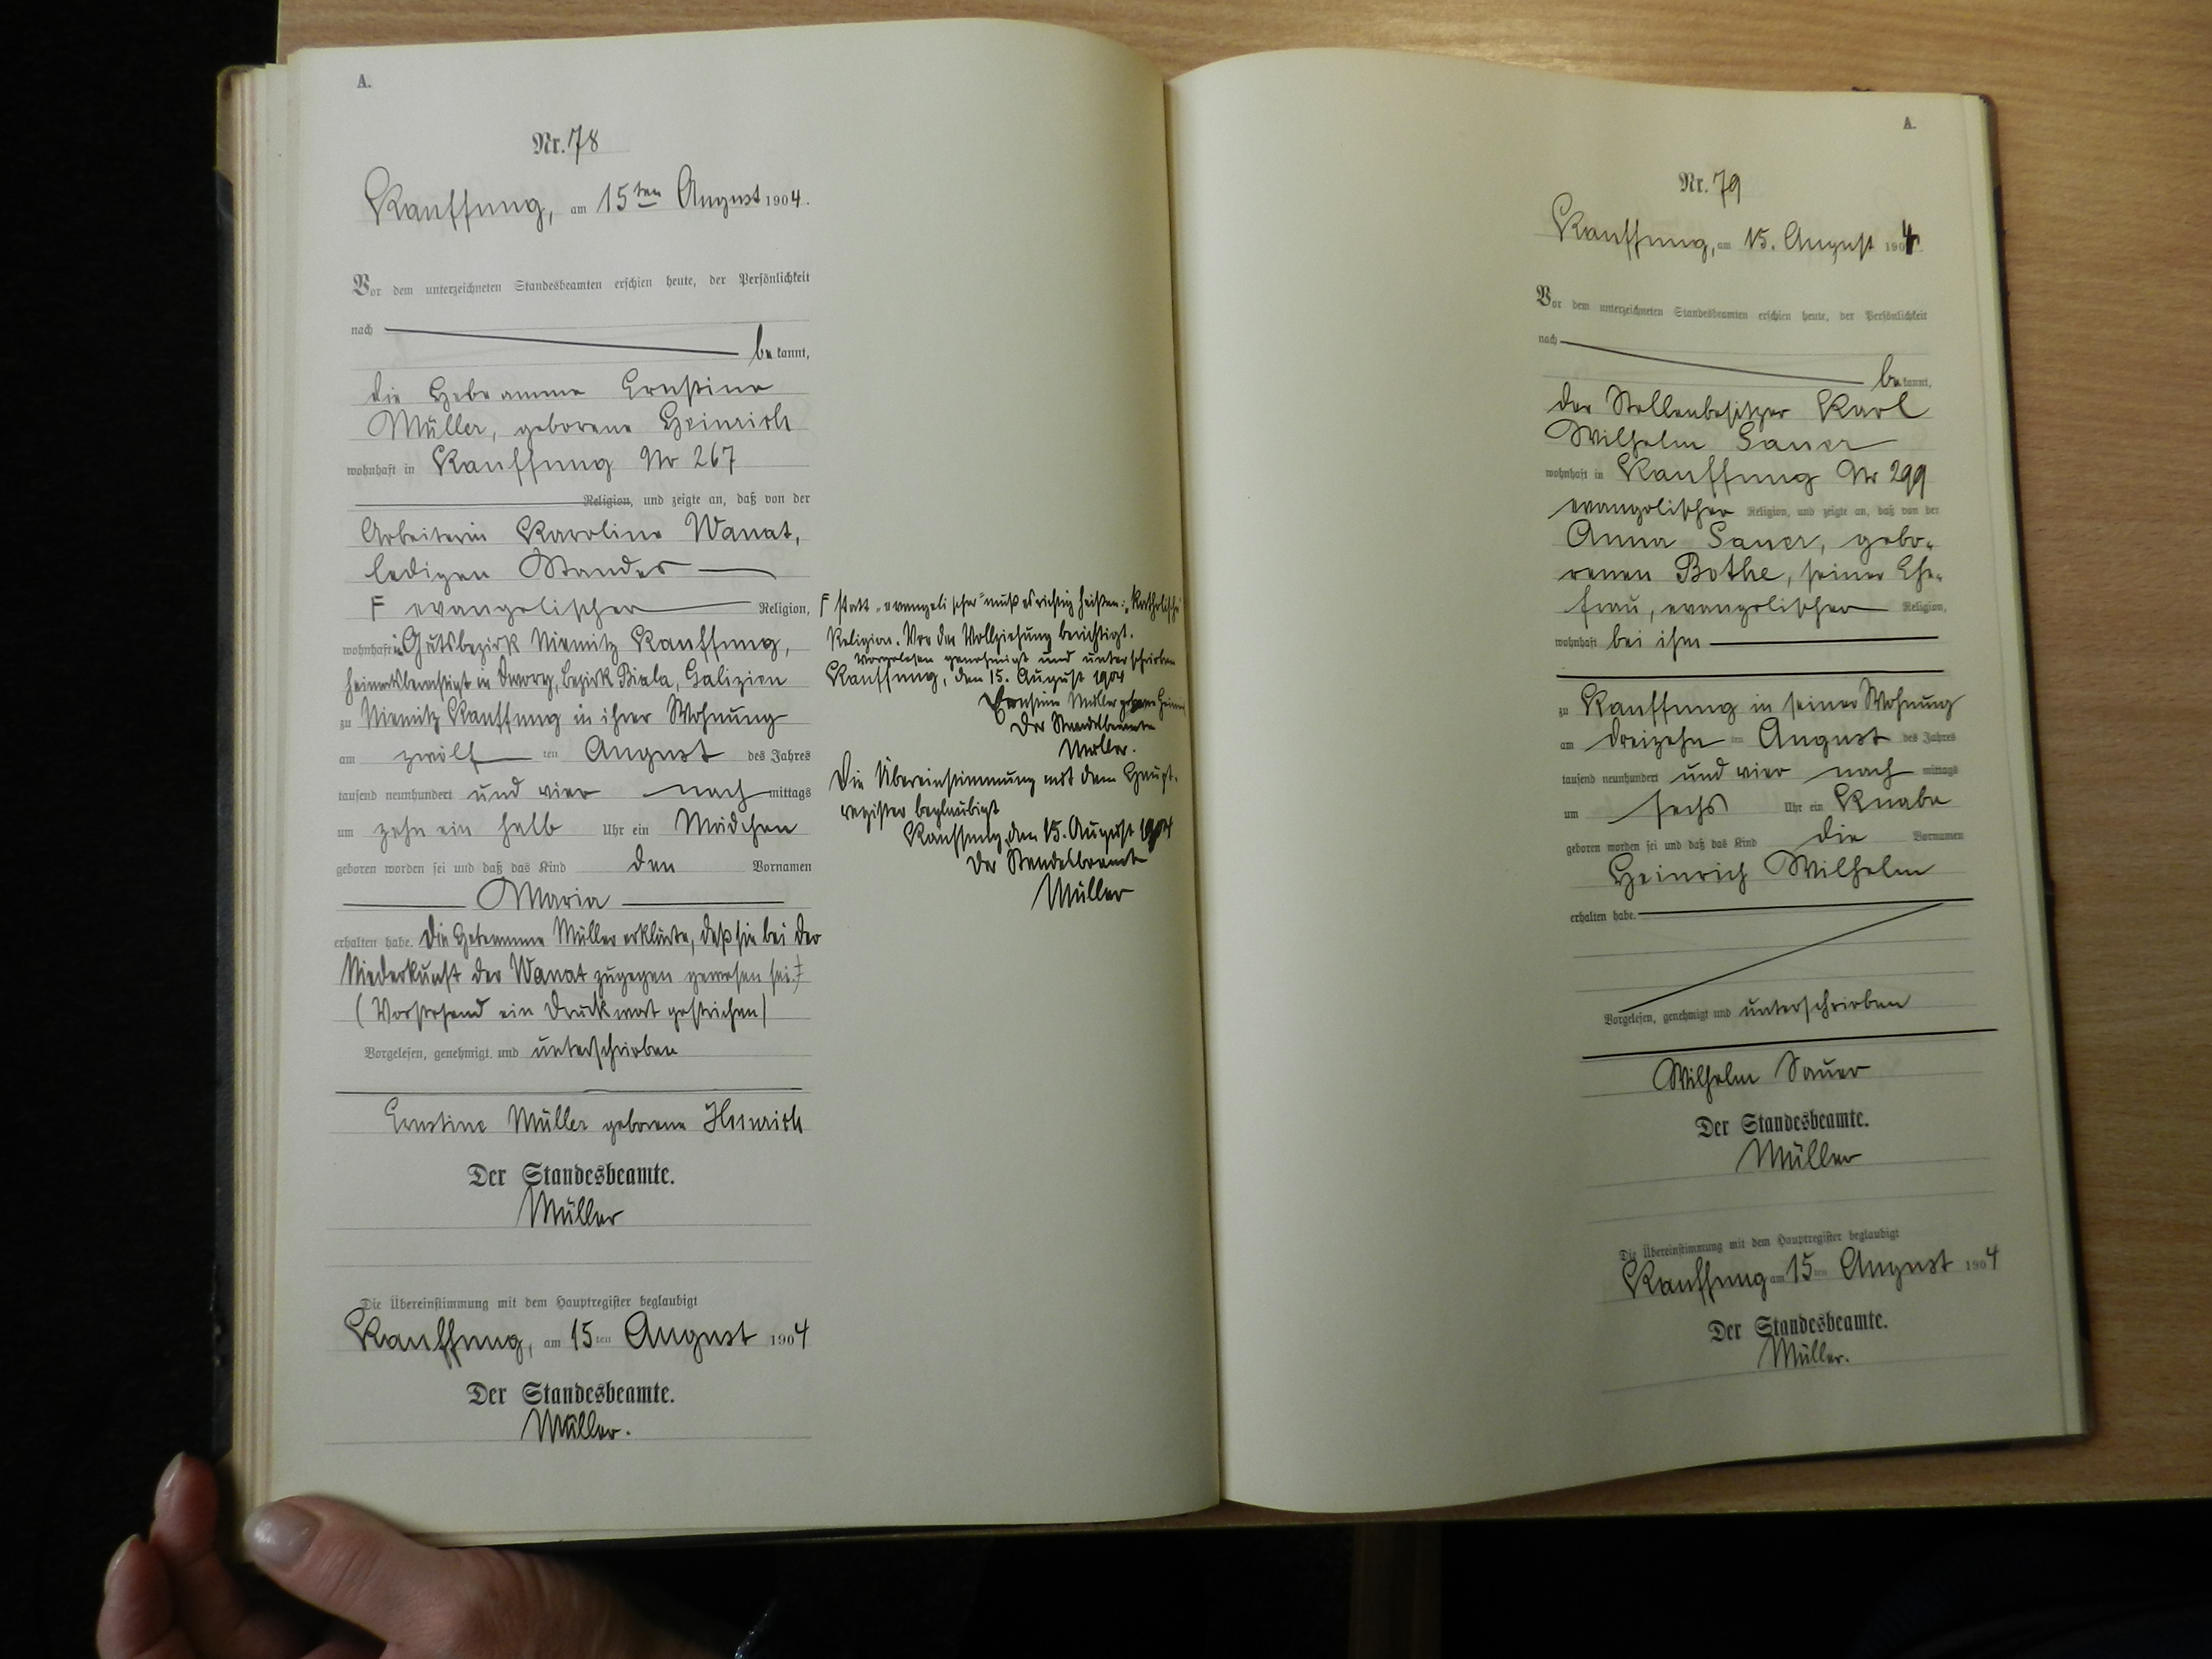 A.
Nr. 78
Kauffung, am 15ten August 1904.
Vor dem unterzeichneten Standesbeamten erschien heute, der Persönlichkeit
nach
bekannt,
die Hebeamme Ernstine
Müller, geborene Heinrich
wohnhaft in Kauffung Nr 267
Religion, und zeigte an, daß von der
Arbeiterin Karoline Wanat,
ledigen Standes
F evangelischer Religion,
wohnhaft in Gutsbezirk Niemitz Kauffung,
heimatsberechtigt in Dwory, Bezirk Biala, Galizien
zu Niemitz Kauffung in ihrer Wohnung
am zwölften August des Jahres
tausend neunhundert und vier nachmittags
um zehn ein halb Uhr ein Mädchen
geboren worden sei und daß das Kind den Vornamen
Maria
erhalten habe. Die Hebeamme Müller erklärte, daß sie bei der
Niederkunft der Wanat zugegen gewesen sei.
(Vorstehend ein Druckwort gestrichen)
Vorgelesen, genehmigt und unterschrieben
Ernstine Müller geborene Heinrich
Der Standesbeamte.
Müller
Die Übereinstimmung mit dem Hauptregister beglaubigt
Kauffung, am 15ten August 1904
Der Standesbeamte.
Müller.
F statt "evangelischer" muß es richtig heißen: "Katholische
Religion. Vor der Vollziehung berichtigt.
Vorgelesen genehmigt und unterschrieben
Kauffung, den 15. August 1904
Ernstine Müller geborene
Der Standesbeamte
Müller.
Die Übereinstimmung mit dem Haupt-
register beglaubigt
Kauffung, den 15. August 1904
Der Standesbeamte
Müller
A.
Nr. 79
Kauffung, am 15. August 1904
Vor dem unterzeichneten Standesbeamten erschien heute, der Persönlichkeit
nach
bekannt,
der Stellenbesitzer Karl
Wilhelm Sauer
wohnhaft in Kauffung Nr 299
evangelischer Religion, und zeigte an, daß von der
Anna Sauer, gebo-
renen Bothe, seiner Ehe-
frau, evangelischer Religion,
wohnhaft bei ihm
zu Kauffung in seiner Wohnung
am dreizehnten August des Jahres
tausend neunhundert und vier nachmittags
um sechs Uhr ein Knabe
geboren worden sei und daß das Kind die Vornamen
Heinrich Wilhelm
erhalten habe.
Vorgelesen, genehmigt und unterschrieben
Wilhelm Sauer
Der Standesbeamte.
Müller
Die Übereinstimmung mit dem Hauptregister beglaubigt
Kauffung am 15ten August 1904
Der Standesbeamte.
Müller.